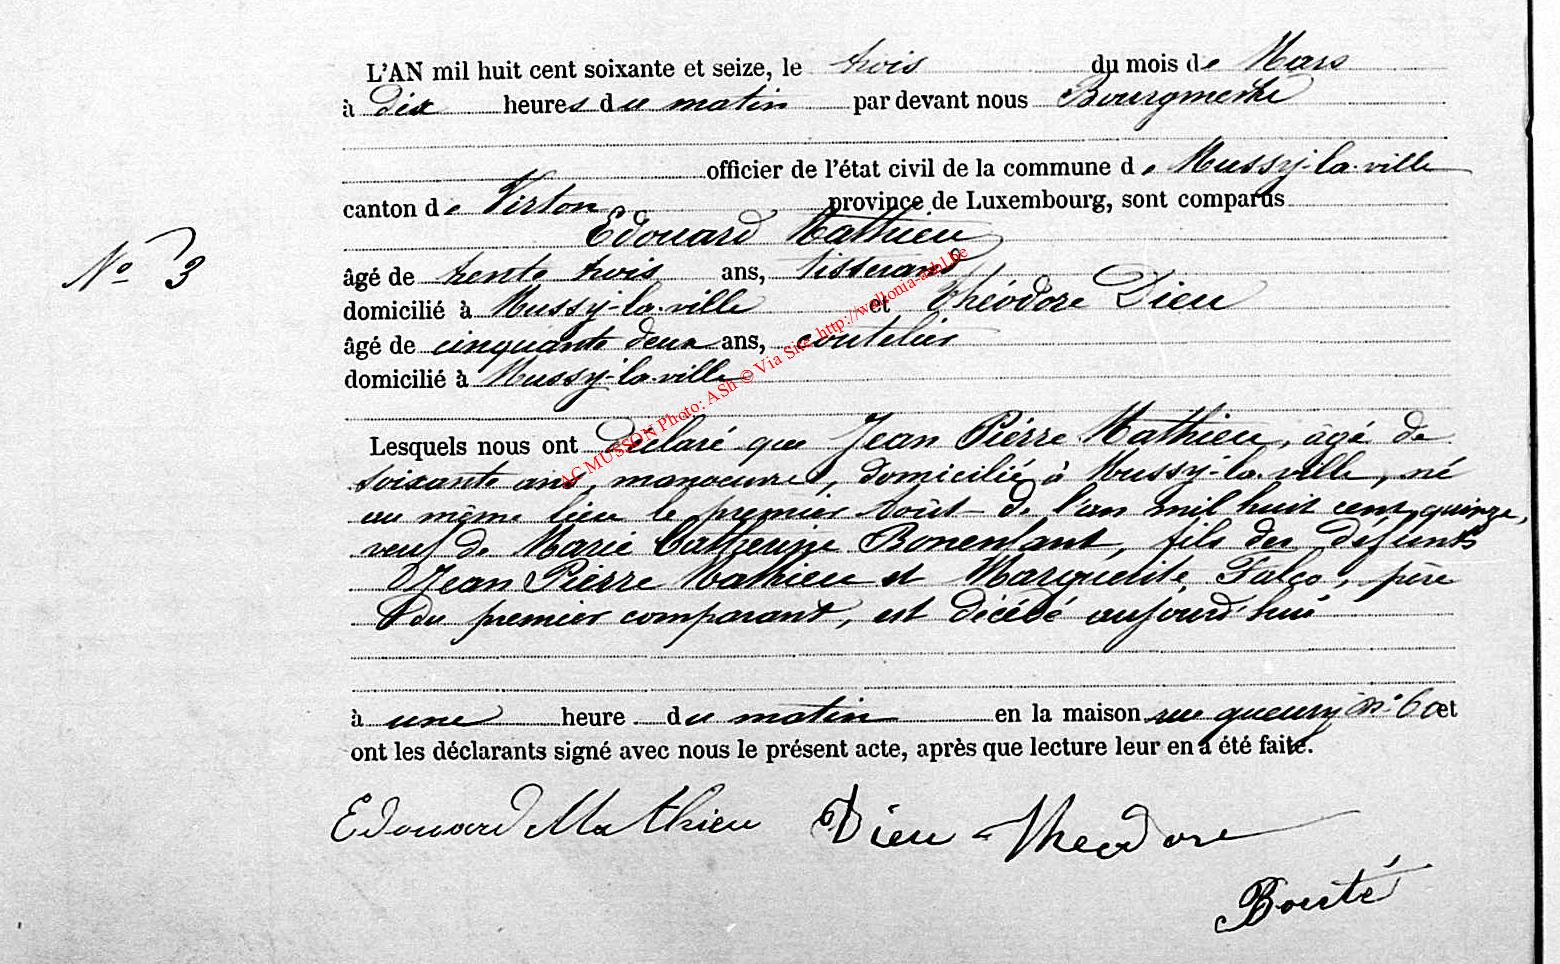 L'AN mil huit cent soixante et seize, le trois du mois de Mars
à dix heures du matin par devant nous Bourgmestre
officier de l'état civil de la commune de Mussy-la-ville
canton de Virton province de Luxembourg, sont comparus
Edouard Mathieu
N° 3
âgé de trente trois ans, tisserand
domicilié à Mussy-la-ville et Théodore Dieu
âgé de cinquante deux ans, coutelier
domicilié à Mussy-la-ville
AC MUSSON Photo: ASh © Via Site http://wallonia-asbl.be
Lesquels nous ont déclaré que Jean Pierre Mathieu, âgé de
soixante ans, manoeuvre, domicilié à Mussy-la-ville, né
au même lieu le premier Août de l'an mil huit cent quinze,
veuf de Marie Catherine Bonenfant, fils des défunts
Jean Pierre Mathieu et Marguerite Falco, père
du premier comparant, est décédé aujourd'hui
à une heure du matin en la maison rue n° 60 et
ont les déclarants signé avec nous le présent acte, après que lecture leur en a été faite.
Edouard Mathieu Dieu Théodore
Bouté